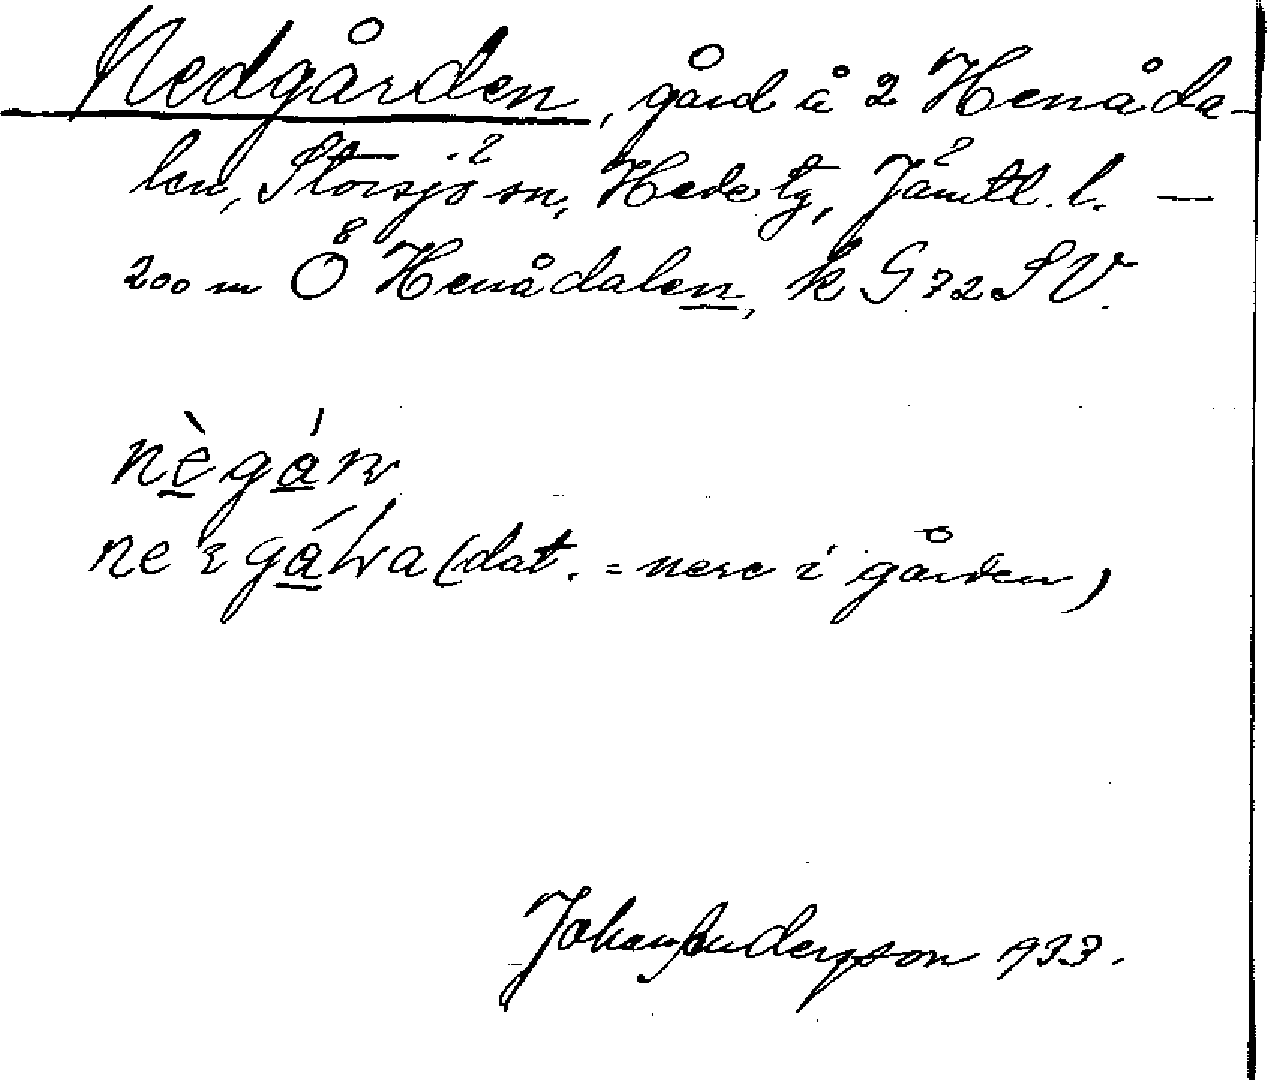 Nedgården, gård å 2 Henåda-
len, Storsjö sn, Hede tg, Jämtl. l. —
200 m Ö Henådalen, k G 72 SV.
nègár
ne gáɫɩa (dat. = nere i gården)
Johan Andersson 1933.